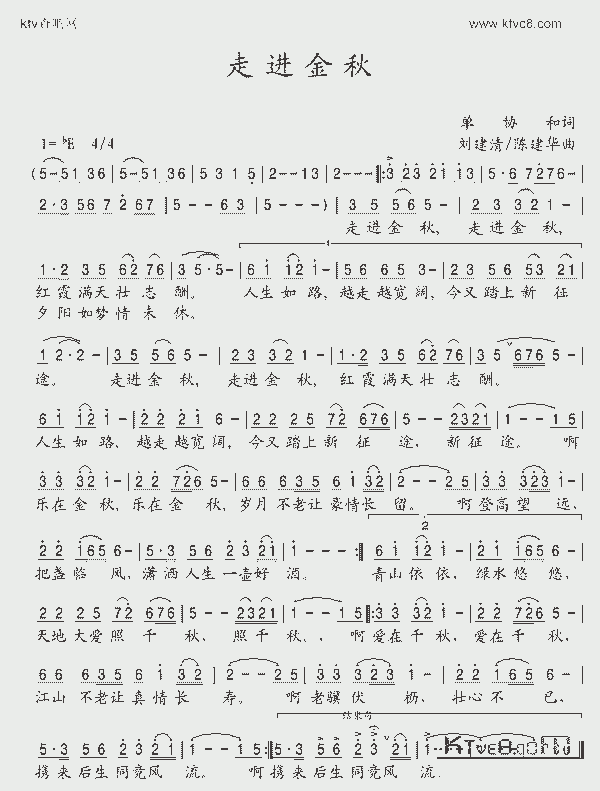 ktv 在唱网
www.ktvc8.com
走进金秋
单协和词
1=♭E 4/4 刘建清/陈建华曲
(5-51 36|5-51 36|5 3 1 5|12---|2---‖:3 23 21 13|5·6 7276-|
2·3 567 2 67|5--63|5---)|3 5 565-|2 3 321-|
走进金秋, 走进金秋,
1·2 35 62 76|3 5 5·5-|61 121-|56 65 5 3|23 56 53 21|
红霞满天壮志酬。 人生如路,越走越宽阔,今又踏上新征
夕阳如梦情未休。
12·2-|35 565-|23 321-|1·2 35 62 76|35 5676 5-|
途。 走进金秋, 走进金秋, 红霞满天壮志酬。
61 121-|22 21 6|22 25 72 676|5--2321|1--15|
人生如路,越走越宽阔,今又踏上新征途,新征途。 啊
33 321-|22 7265-|66 635 61 32|2--25|33 3323-|
乐在金秋,乐在金秋,岁月不老让豪情长留。 啊登高望远,
22 1656-|5·3 56 23 21|1---:‖61 121-|21 1656-|
把盏临风,潇洒人生一壶好酒。 青山依依,绿水悠悠,
22 25 72 676|5--2321|1--15‖:33 321-|22 7265-|
天地大爱照千秋,照千秋, 啊爱在千秋,爱在千秋,
66 635 61 32|2--25|33 3323-|22 1656-|
江山不老让真情长寿。 啊老骥伏枥,壮心不已,
结束句
5·3 56 23 21|1--15:‖5·3 56 23 21|1--
携来后生同竞风流。 啊携来后生同竞风流.
KTvc8.com